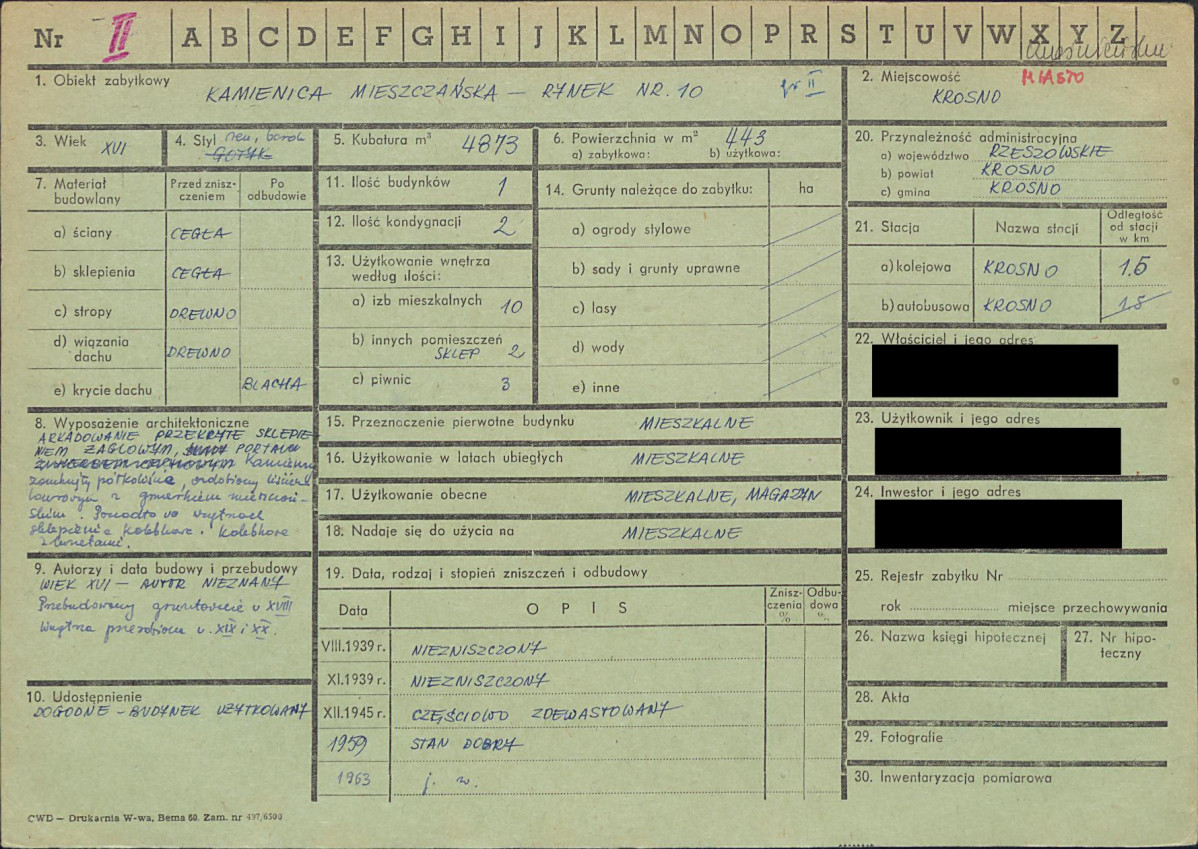 Nr II A B C D E F G H I J K L M N O P R S T U V W X Y Z
1. Obiekt zabytkowy
KAMIENICA MIESZCZAŃSKA – RYNEK NR. 10 gr II
2. Miejscowość MIASTO
KROSNO
3. Wiek XVI
4. Styl ren, barok
GOTYK
5. Kubatura m³ 4873
6. Powierzchnia w m² 443
a) zabytkowa: b) użytkowa:
20. Przynależność administracyjna
a) województwo RZESZOWSKIE
b) powiat KROSNO
c) gmina KROSNO
7. Materiał budowlany
Przed znisz-
czeniem
Po
odbudowie
a) ściany CEGŁA
b) sklepienia CEGŁA
c) stropy DREWNO
d) wiązania
dachu DREWNO
e) krycie dachu BLACHA
11. Ilość budynków 1
12. Ilość kondygnacji 2
13. Użytkowanie wnętrza
według ilości:
a) izb mieszkalnych 10
b) innych pomieszczeń
SKLEP 2
c) piwnic 3
14. Grunty należące do zabytku: ha
a) ogrody stylowe
b) sady i grunty uprawne
c) lasy
d) wody
e) inne
21. Stacja Nazwa stacji
Odległość
od stacji
w km
a) kolejowa KROSNO 1.5
b) autobusowa KROSNO 1.8
22. Właściciel i jego adres
23. Użytkownik i jego adres
24. Inwestor i jego adres
8. Wyposażenie architektoniczne
ARKADOWANIE PRZEKRYTE SKLEPIE-
NIEM ŻAGLOWYM, PORTAL
Kamienny
zamknięty półkolisto, ozdobiony liściem
laurowym z gmerkiem mieszczań-
skim. Ponadto we wnętrzach
sklepienia kolebkowe i kolebkowe
z lunetami.
15. Przeznaczenie pierwotne budynku MIESZKALNE
16. Użytkowanie w latach ubiegłych MIESZKALNE
17. Użytkowanie obecne MIESZKALNE, MAGAZYN
18. Nadaje się do użycia na MIESZKALNE
9. Autorzy i data budowy i przebudowy
WIEK XVI – AUTOR NIEZNANY
Przebudowany gruntownie w XVIII
Wnętrza przerobione w. XIX i XX.
10. Udostępnienie
DOGODNE – BUDYNEK UŻYTKOWANY
19. Data, rodzaj i stopień zniszczeń i odbudowy
Data OPIS
Znisz-
czenia
%
Odbu-
dowa
%
VIII.1939 r. NIEZNISZCZONY
XI.1939 r. NIEZNISZCZONY
XII.1945 r. CZĘŚCIOWO ZDEWASTOWANY
1959 STAN DOBRY
1963 j. w.
25. Rejestr zabytku Nr
rok miejsce przechowywania
26. Nazwa księgi hipotecznej
27. Nr hipo-
teczny
28. Akta
29. Fotografie
30. Inwentaryzacja pomiarowa
CWD – Drukarnia W-wa, Bema 60. Zam. nr 497/6500